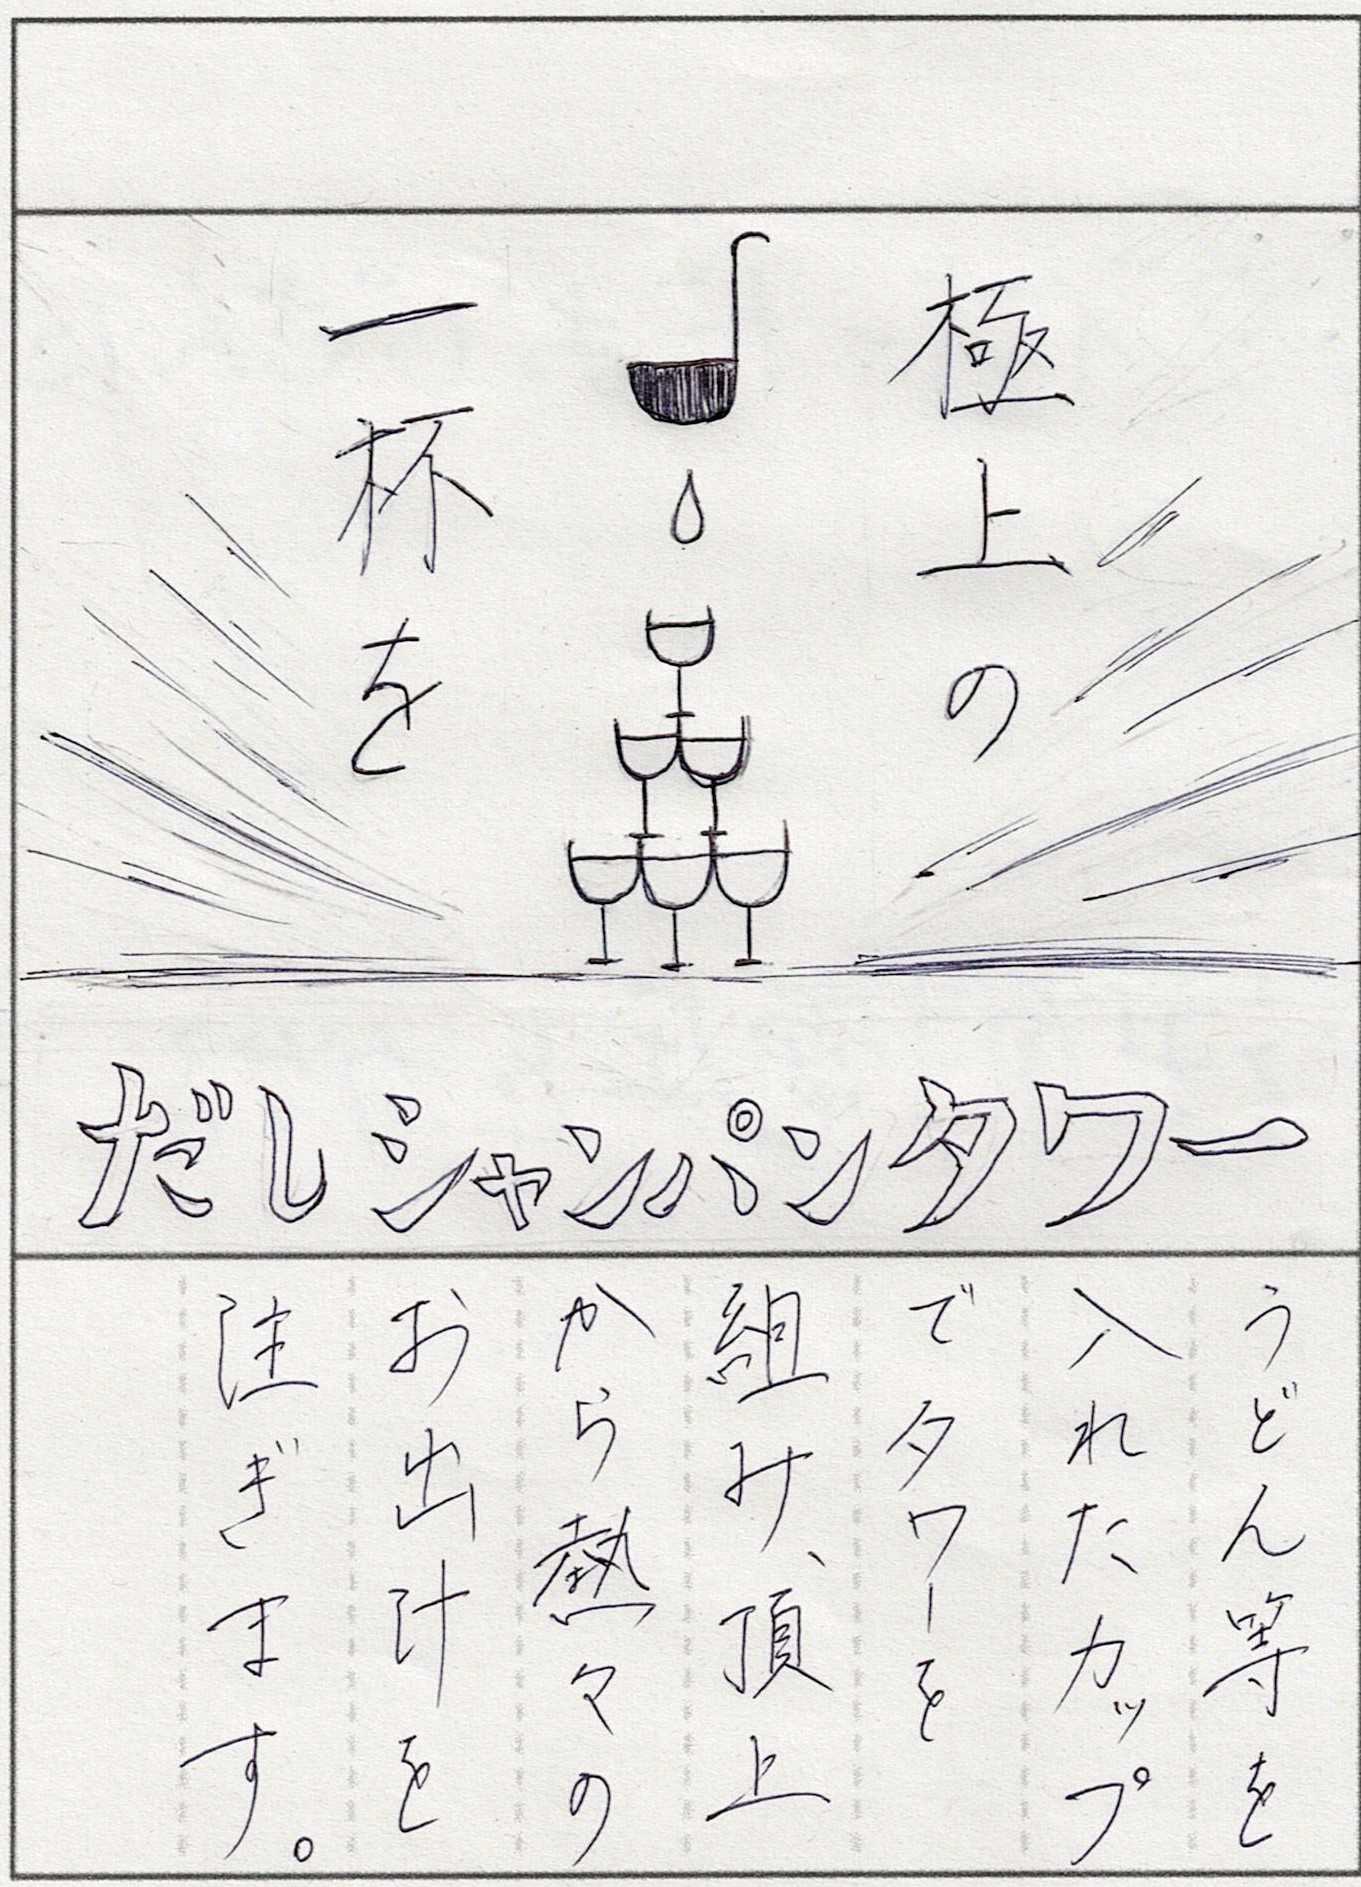 極上の
一杯を
だしシャンパンタワー
うどん等を
入れたカップ
でタワーを
組み、頂上
から熱々の
お出汁を
注ぎます。